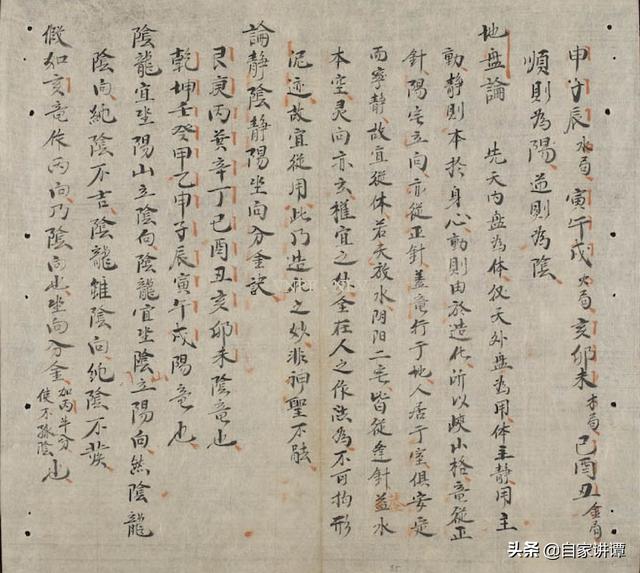 申子辰水局寅午戌火局亥卯未木局巳酉丑金局
順則為陽逆則為陰
地盘論 先天内盘為体後天外盘為用体主静用主
動静則本於身心動則由於造化所以峽山格竜從正
針陽宅立向亦從正針盖竜行于地人活于室俱安定
而寧静故宜從休若夫放水阴阳二宅皆從逢針盖水
本空灵向亦玄權宜之全在人之作法為不可拘形
泥迹故宜從用此乃造化之妙非神聖不能
論静陰静陽坐向分金訣
艮庚丙巽辛丁巳酉丑亥卯未陰竜也
乾坤壬癸甲乙申子辰寅午戌陽竜也
陰龍宜坐陽山立陰向陰龍宜坐陰立陽向然陰龍
陰向純陰不吉陰龍雖陰向純陰不發
假如亥竜作丙向乃陰向也坐向分金加丙午分使不孤陰也
头条 @自家讲谭